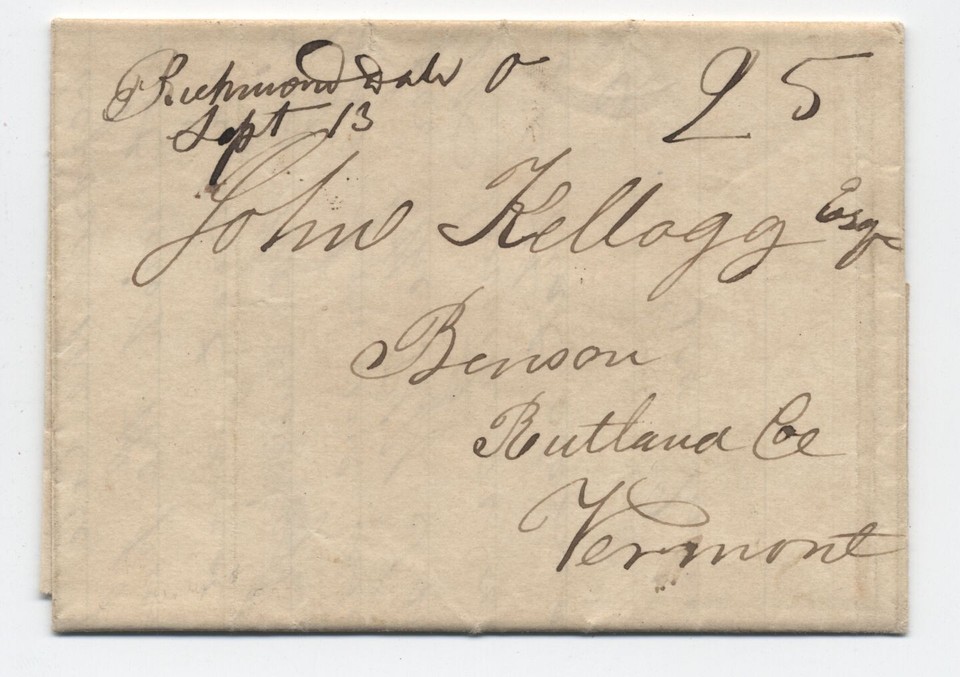 Richmond Dale O
Sept 13
25
John Kellogg Esq
Benson
Rutland Co
Vermont